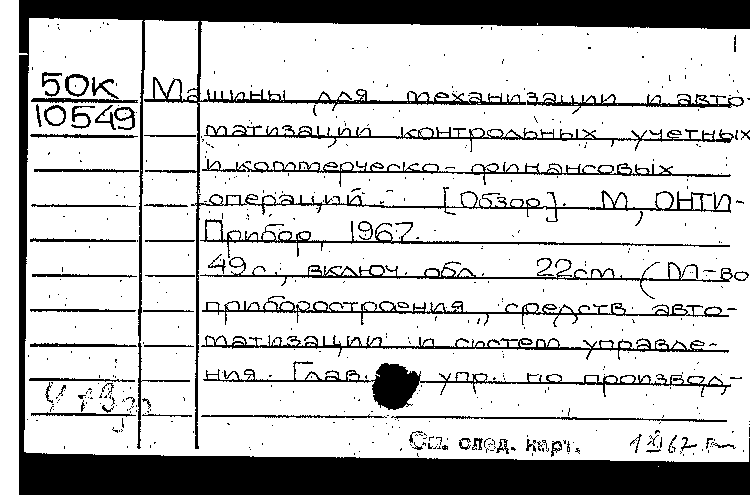 50К
10549
Машины для механизации и авто-
матизации контрольных, учетных
и коммерческо-финансовых
операций. [Обзор]. М, ОНТИ-
Прибор, 1967.
49с., включ. обл. 22см. (М-во
приборостроения, средств авто-
матизации и систем управле-
ния. Глав. упр. по производ.-
См. след. карт.